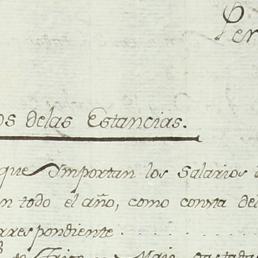 Per
os delas Estancias.
que Importan los Salarios
en todo el año, como consta de
orrespondiente